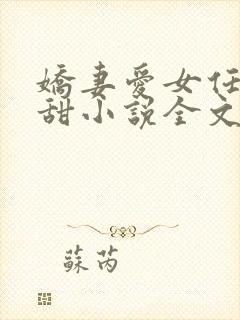 嬌妻愛女任
甜小說全文
蘇芮